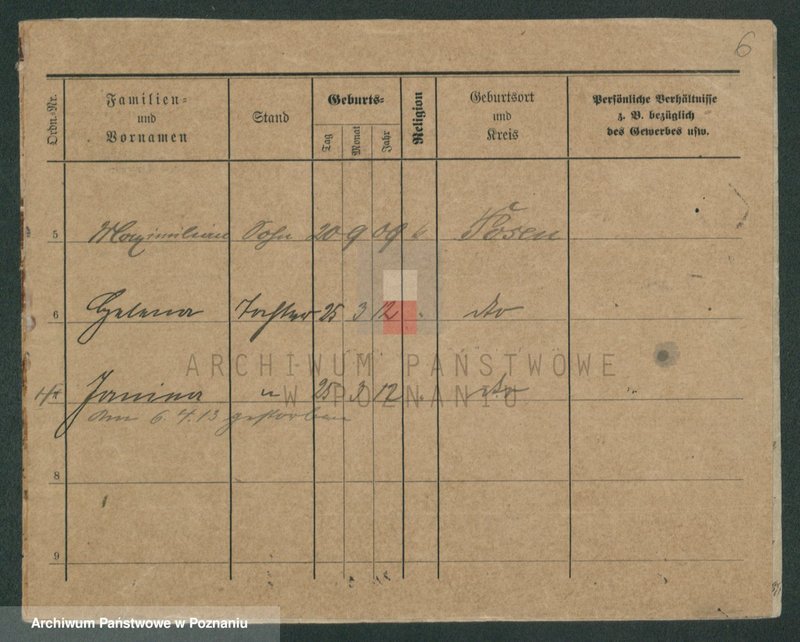 6
Ordn.-Nr.
Familien-
und
Vornamen
Stand
Geburts-
Tag
Monat
Jahr
Religion
Geburtsort
und
Kreis
Persönliche Verhältnisse
z. B. bezüglich
des Gewerbes usw.
5 Maximilian Sohn 20 9 09 k Posen
6 Helena Tochter 25 3 12 " dto
ARCHIWUM PAŃSTWOWE
W POZNANIU
Janina " 25 3 12 " dto "
Am 6. 4. 13 gestorben
8
9
Archiwum Państwowe w Poznaniu